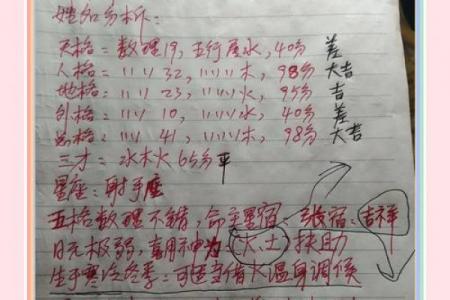 姓名分析：
天格：数理19，五行属水，40分 差
人格：〃〃32，〃〃木，98分 大吉
地格：〃〃23，〃〃火，95分 吉
外格：〃〃10，〃〃水，40分 差
总格：〃〃41，〃〃木，98分 大吉
三才：水木火 65分 平
星座：射手座
五格数理不错，命主星宿：张宿：吉祥
日元极弱，喜用神为(火、土)扶助
生于寒冷冬季：可适当借火温身调候